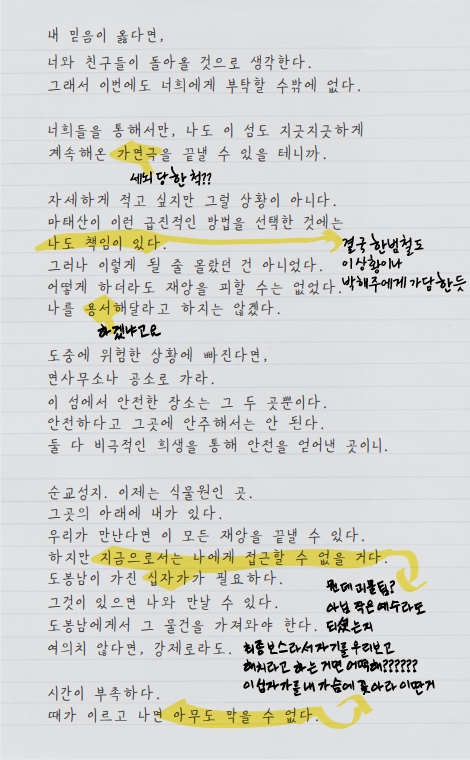 내 믿음이 옳다면,
너와 친구들이 돌아올 것으로 생각한다.
그래서 이번에도 너희에게 부탁할 수밖에 없다.
너희들을 통해서만, 나도 이 섬도 지긋지긋하게
계속해온 가면극을 끝낼 수 있을 테니까.
세뇌 당한 척??
자세하게 적고 싶지만 그럴 상황이 아니다.
마태산이 이런 급진적인 방법을 선택한 것에는
나도 책임이 있다.
결국 한범철도
그러나 이렇게 될 줄 몰랐던 건 아니었다.
이 상황이나
어떻게 하더라도 재앙을 피할 수는 없었다.
박해주에게 가담한듯
나를 용서해달라고 하지는 않겠다.
하겠냐고요
도중에 위험한 상황에 빠진다면,
면사무소나 공소로 가라.
이 섬에서 안전한 장소는 그 두 곳뿐이다.
안전하다고 그곳에 안주해서는 안 된다.
둘 다 비극적인 희생을 통해 안전을 얻어낸 곳이니.
순교성지. 이제는 식물원인 곳.
그곳의 아래에 내가 있다.
우리가 만난다면 이 모든 재앙을 끝낼 수 있다.
하지만 지금으로서는 나에게 접근할 수 없을 거다.
도봉남이 가진 십자가가 필요하다.
뭔데 괴물됨?
그것이 있으면 나와 만날 수 있다.
아님 작은 예수라도
도봉남에게서 그 물건을 가져와야 한다.
되셨는지
여의치 않다면, 강제로라도.
최종보스라서 자기를 우리보고
해치라고 하는 거면 어떡해??????
이 십자가를 내 가슴에 꽂아라 이딴거
시간이 부족하다.
때가 이르고 나면 아무도 막을 수 없다.